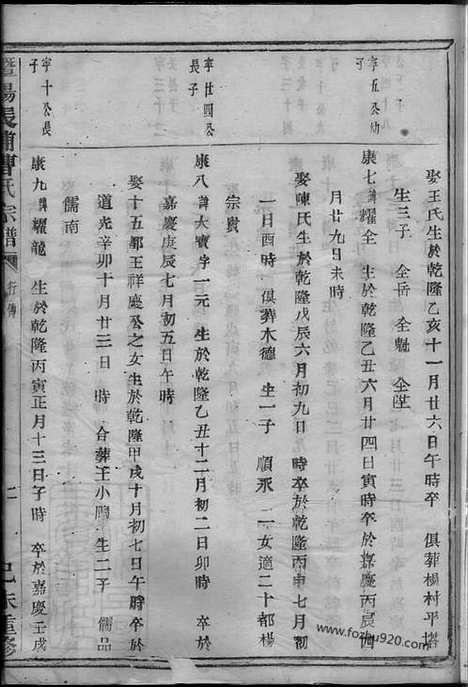 娶王氏生於乾隆乙亥十一月廿六日午時卒 俱葬楊村平塔
生三子 全岳 全魁 全陞
寧五公幼子
康七諱耀全 生於乾隆乙丑六月廿四日寅時卒於嘉慶丙辰四
月廿九日未時
娶陳氏生於乾隆戊辰六月初九日 時卒於乾隆丙申七月初
一日酉時 俱葬木德 生一子 順永 一女適二十都楊
宗賓
寧廿四公長子
康八諱大寶字一元 生於乾隆乙丑十二月初二日卯時 卒於
嘉慶庚辰七月初五日午時
娶十五都王祥慶公之女生於乾隆甲戌十月初七日午時卒於
道光辛卯十月廿三日 時 合葬王小陶 生二子 儒品
儒南
寧十公長子
康九諱耀龍 生於乾隆丙寅正月十三日子時 卒於嘉慶壬戌
暨陽長浦曹氏宗譜
行傳
己未重修
www.fozhu920.com